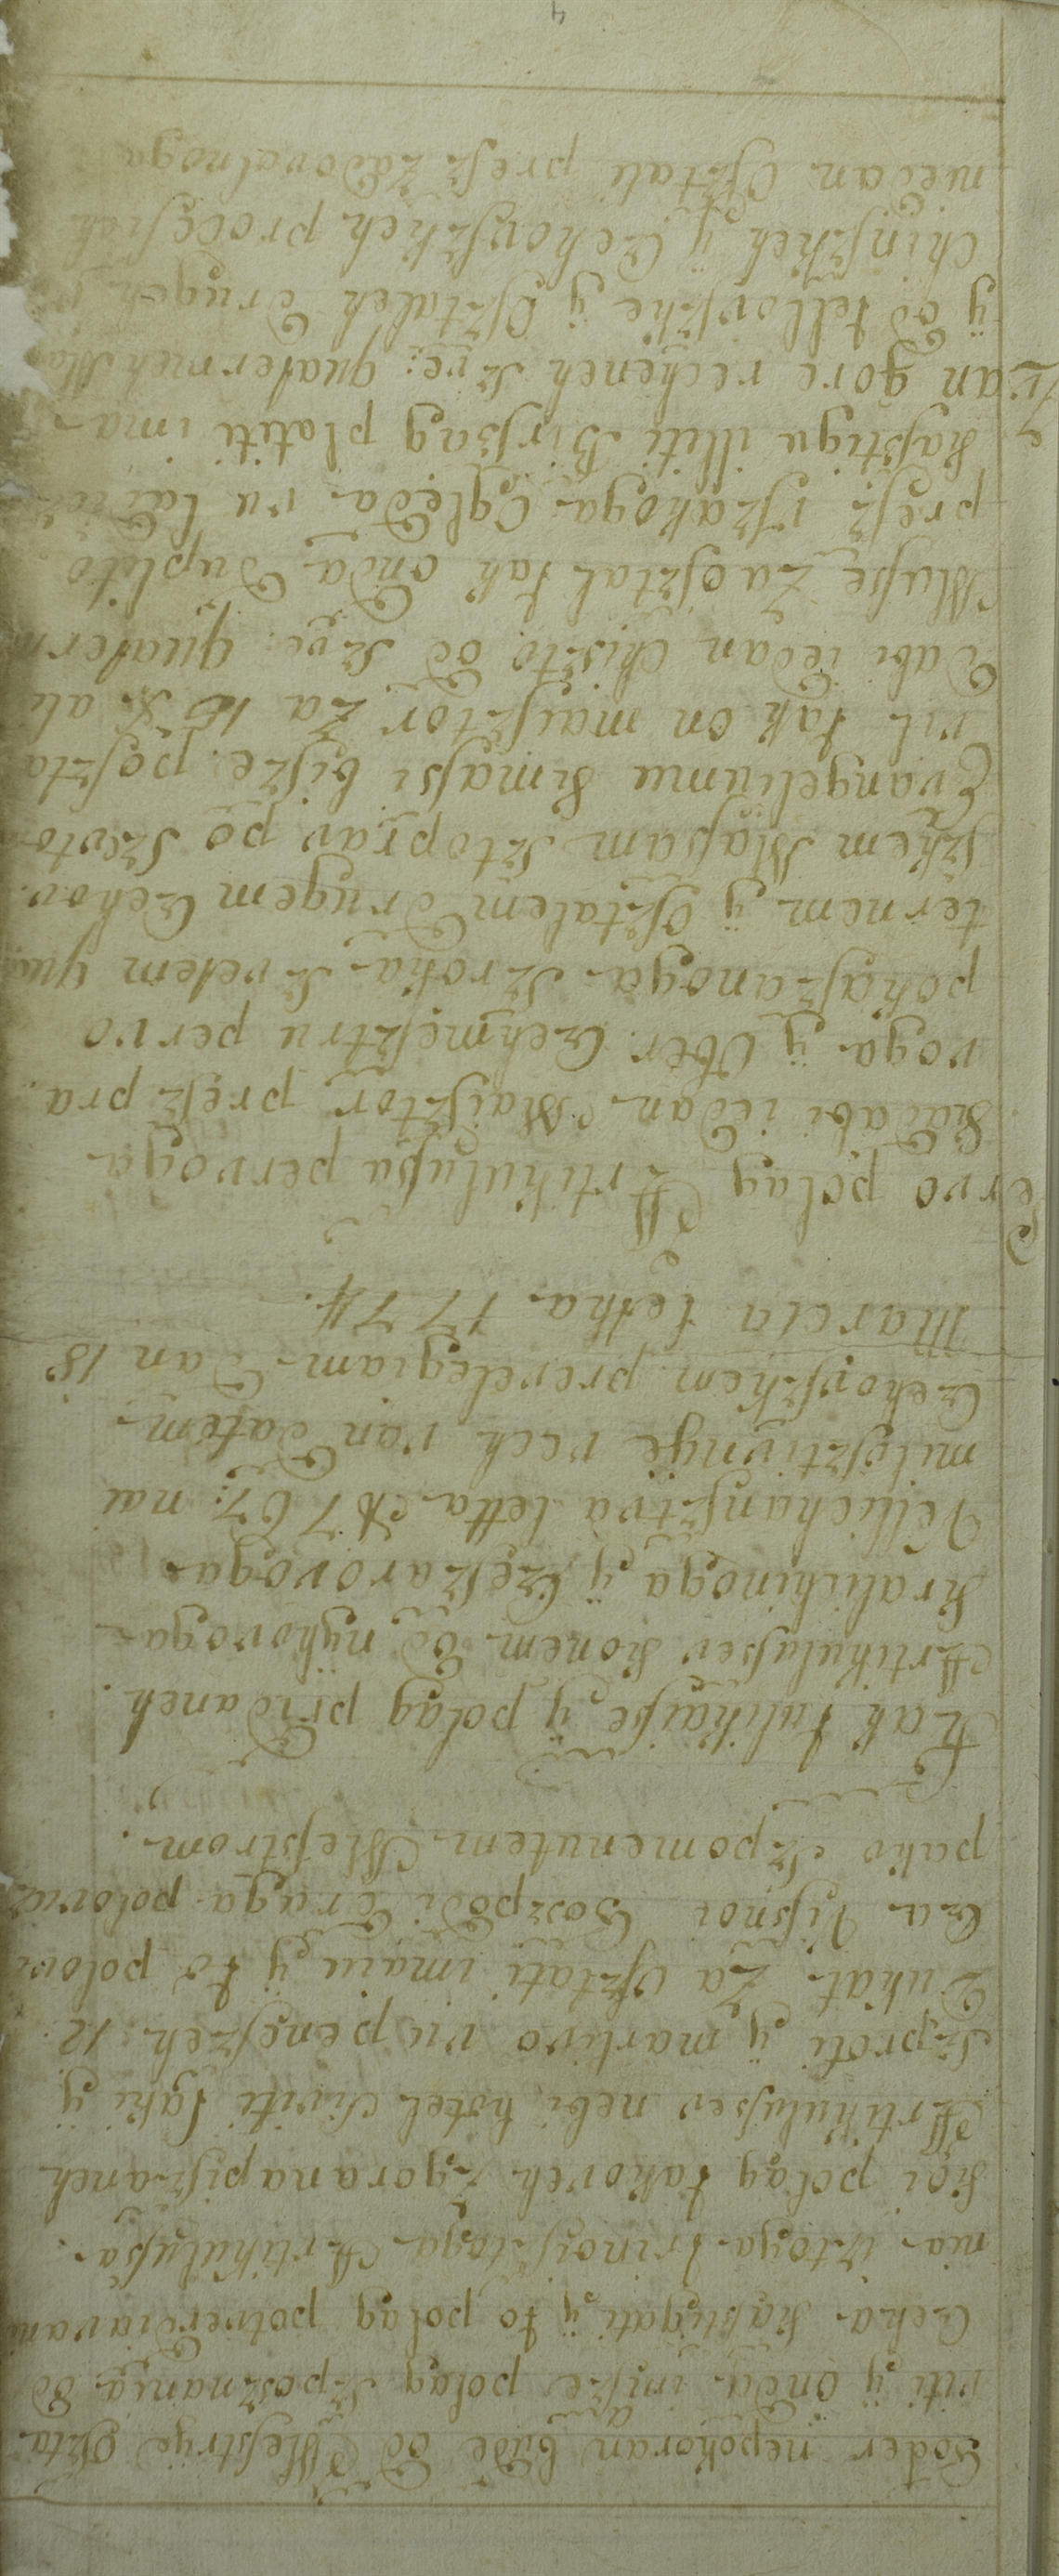 Goder nepokoran bude od Meſtrye oſzta
viti y onda imſze polag ſzpoznania od
Ceha kaſtigati, y to polag potverdiavan
nia iztoga trinoiſztoga Artikuluſsa.
koi polag takoveh zgora napiſzaneh
Artikuluſsev nebi hotel siviti taki y
ſzproti y martvo vu peneſzeh 12
Dukat za oſztati imaiu y to polovi
Cza Viſnoi Goszpodi druga polovicz
pako ſzpomenutem Meſtrom.
Kak tulikaiſse y polag pridaneh
Artikuluſsev kionem od nyhovoga
Kralichinoga y Czeſzarovoga
Vellichanſztva letta 1767: nai
miloſztivnye vech van datem
Czehovſzkem preveleg̈iam dan 18
Marcia letha 1774.
Pervo polag Artikuluſsa pervoga
kadabi iedan Maiſztor prez pra
voga y Ober Czehmeſztru pervo
pokaſzanoga ſzroka ſzvetem qua
ternem y oſztalem drugem Czehov
ſzkem Maſsam ſztoprav po ſzveto
Evangeliumu kimaſsi biſze poſzta
vil tak on maiſztor za 15 X ali
dabi iedan chiſzto od ſzve: quatern
Maſse zaoſztal tak onda Duplito
prez vſzakoga ogleda vu ladicz
kaſtigu iliti Birſag platiti ima
Zvan gore recheneh ſzve: quaterneh Maſ
y od tellovſzke y oſztaleh drugeh
chinſzkeh y Czehovſzkeh proceſsiah
niedan oſztati prez zadovolnoga
4